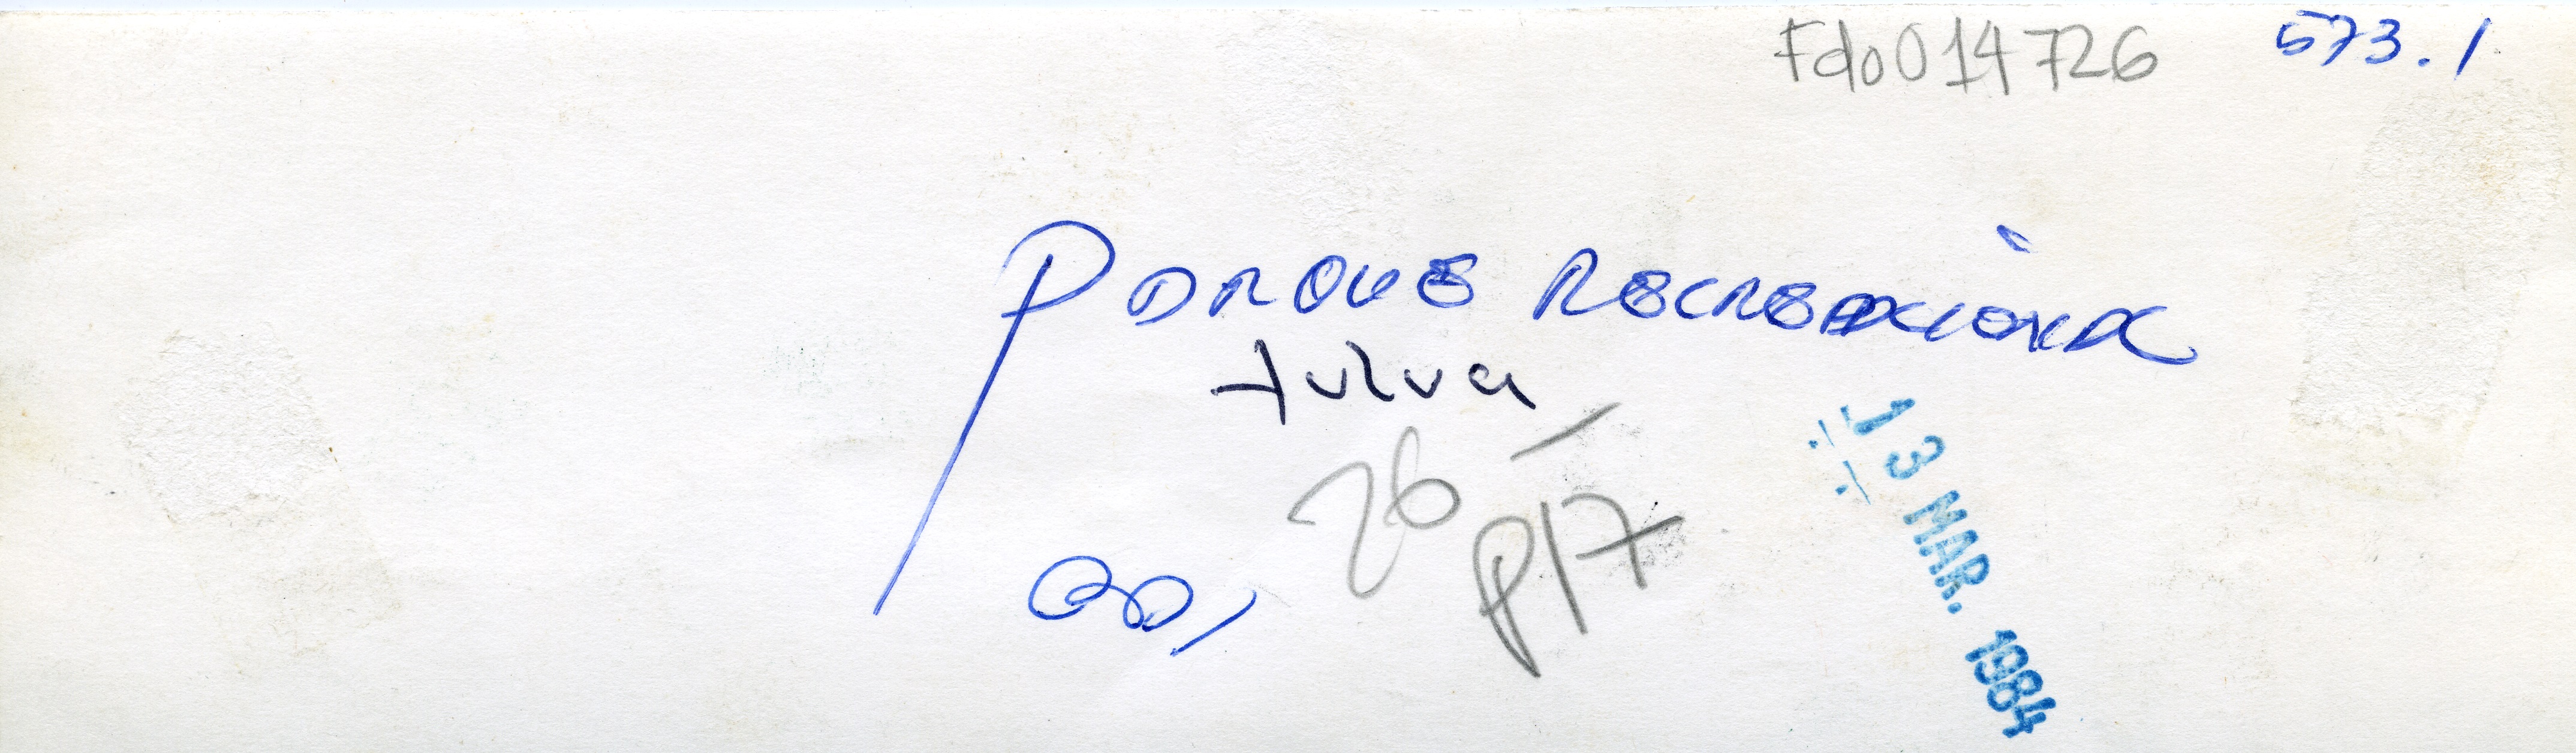 Fdo014726 573.1
Parque Recreacional
tulua
26
P17
13 MAR. 1984